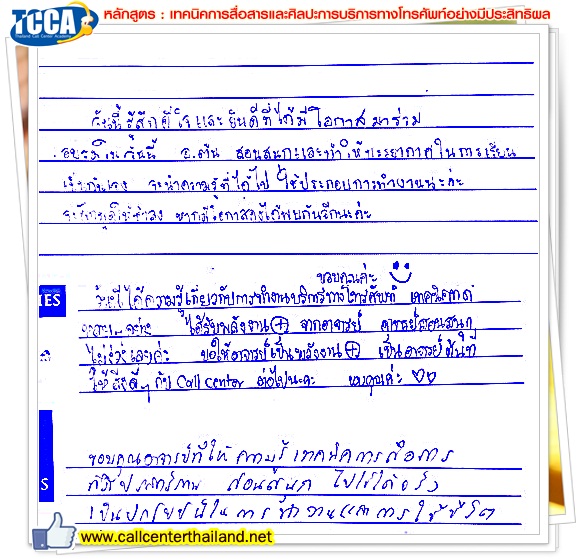 TCCA
Thailand Call Center Academy
หลักสูตร : เทคนิคการสื่อสารและศิลปะการบริการทางโทรศัพท์อย่างมีประสิทธิผล
วันนี้รู้สึกดีใจและยินดีที่ได้มีโอกาสมาร่วม
อบรมในวันนี้ อ.ต้น สอนสนุกและทำให้บรรยากาศในการเรียน
เป็นกันเอง จะนำความรู้ที่ได้ไปใช้ประกอบการทำงานนะค่ะ
หากมีโอกาสคงได้พบกันอีกนะค่ะ
ขอบคุณค่ะ
IES วันนี้ได้ความรู้เกี่ยวกับการทำงานบริการทางโทรศัพท์
ได้รับพลังงาน + จากอาจารย์ อาจารย์สอนสนุก
ไม่ง่วงเลยค่ะ ขอให้อาจารย์เป็นพลังงาน + เป็นอาจารย์
ให้สิ่งดีๆ กับ Call center ต่อไปนะคะ ขอบคุณค่ะ ♡♡
ขอบคุณอาจารย์ที่ให้ความรู้ เทคนิคการสื่อสาร
สอนสนุก ไปใช้ได้จริง
S เป็นประโยชน์ในการทำงานและการใช้ชีวิต
www.callcenterthailand.net